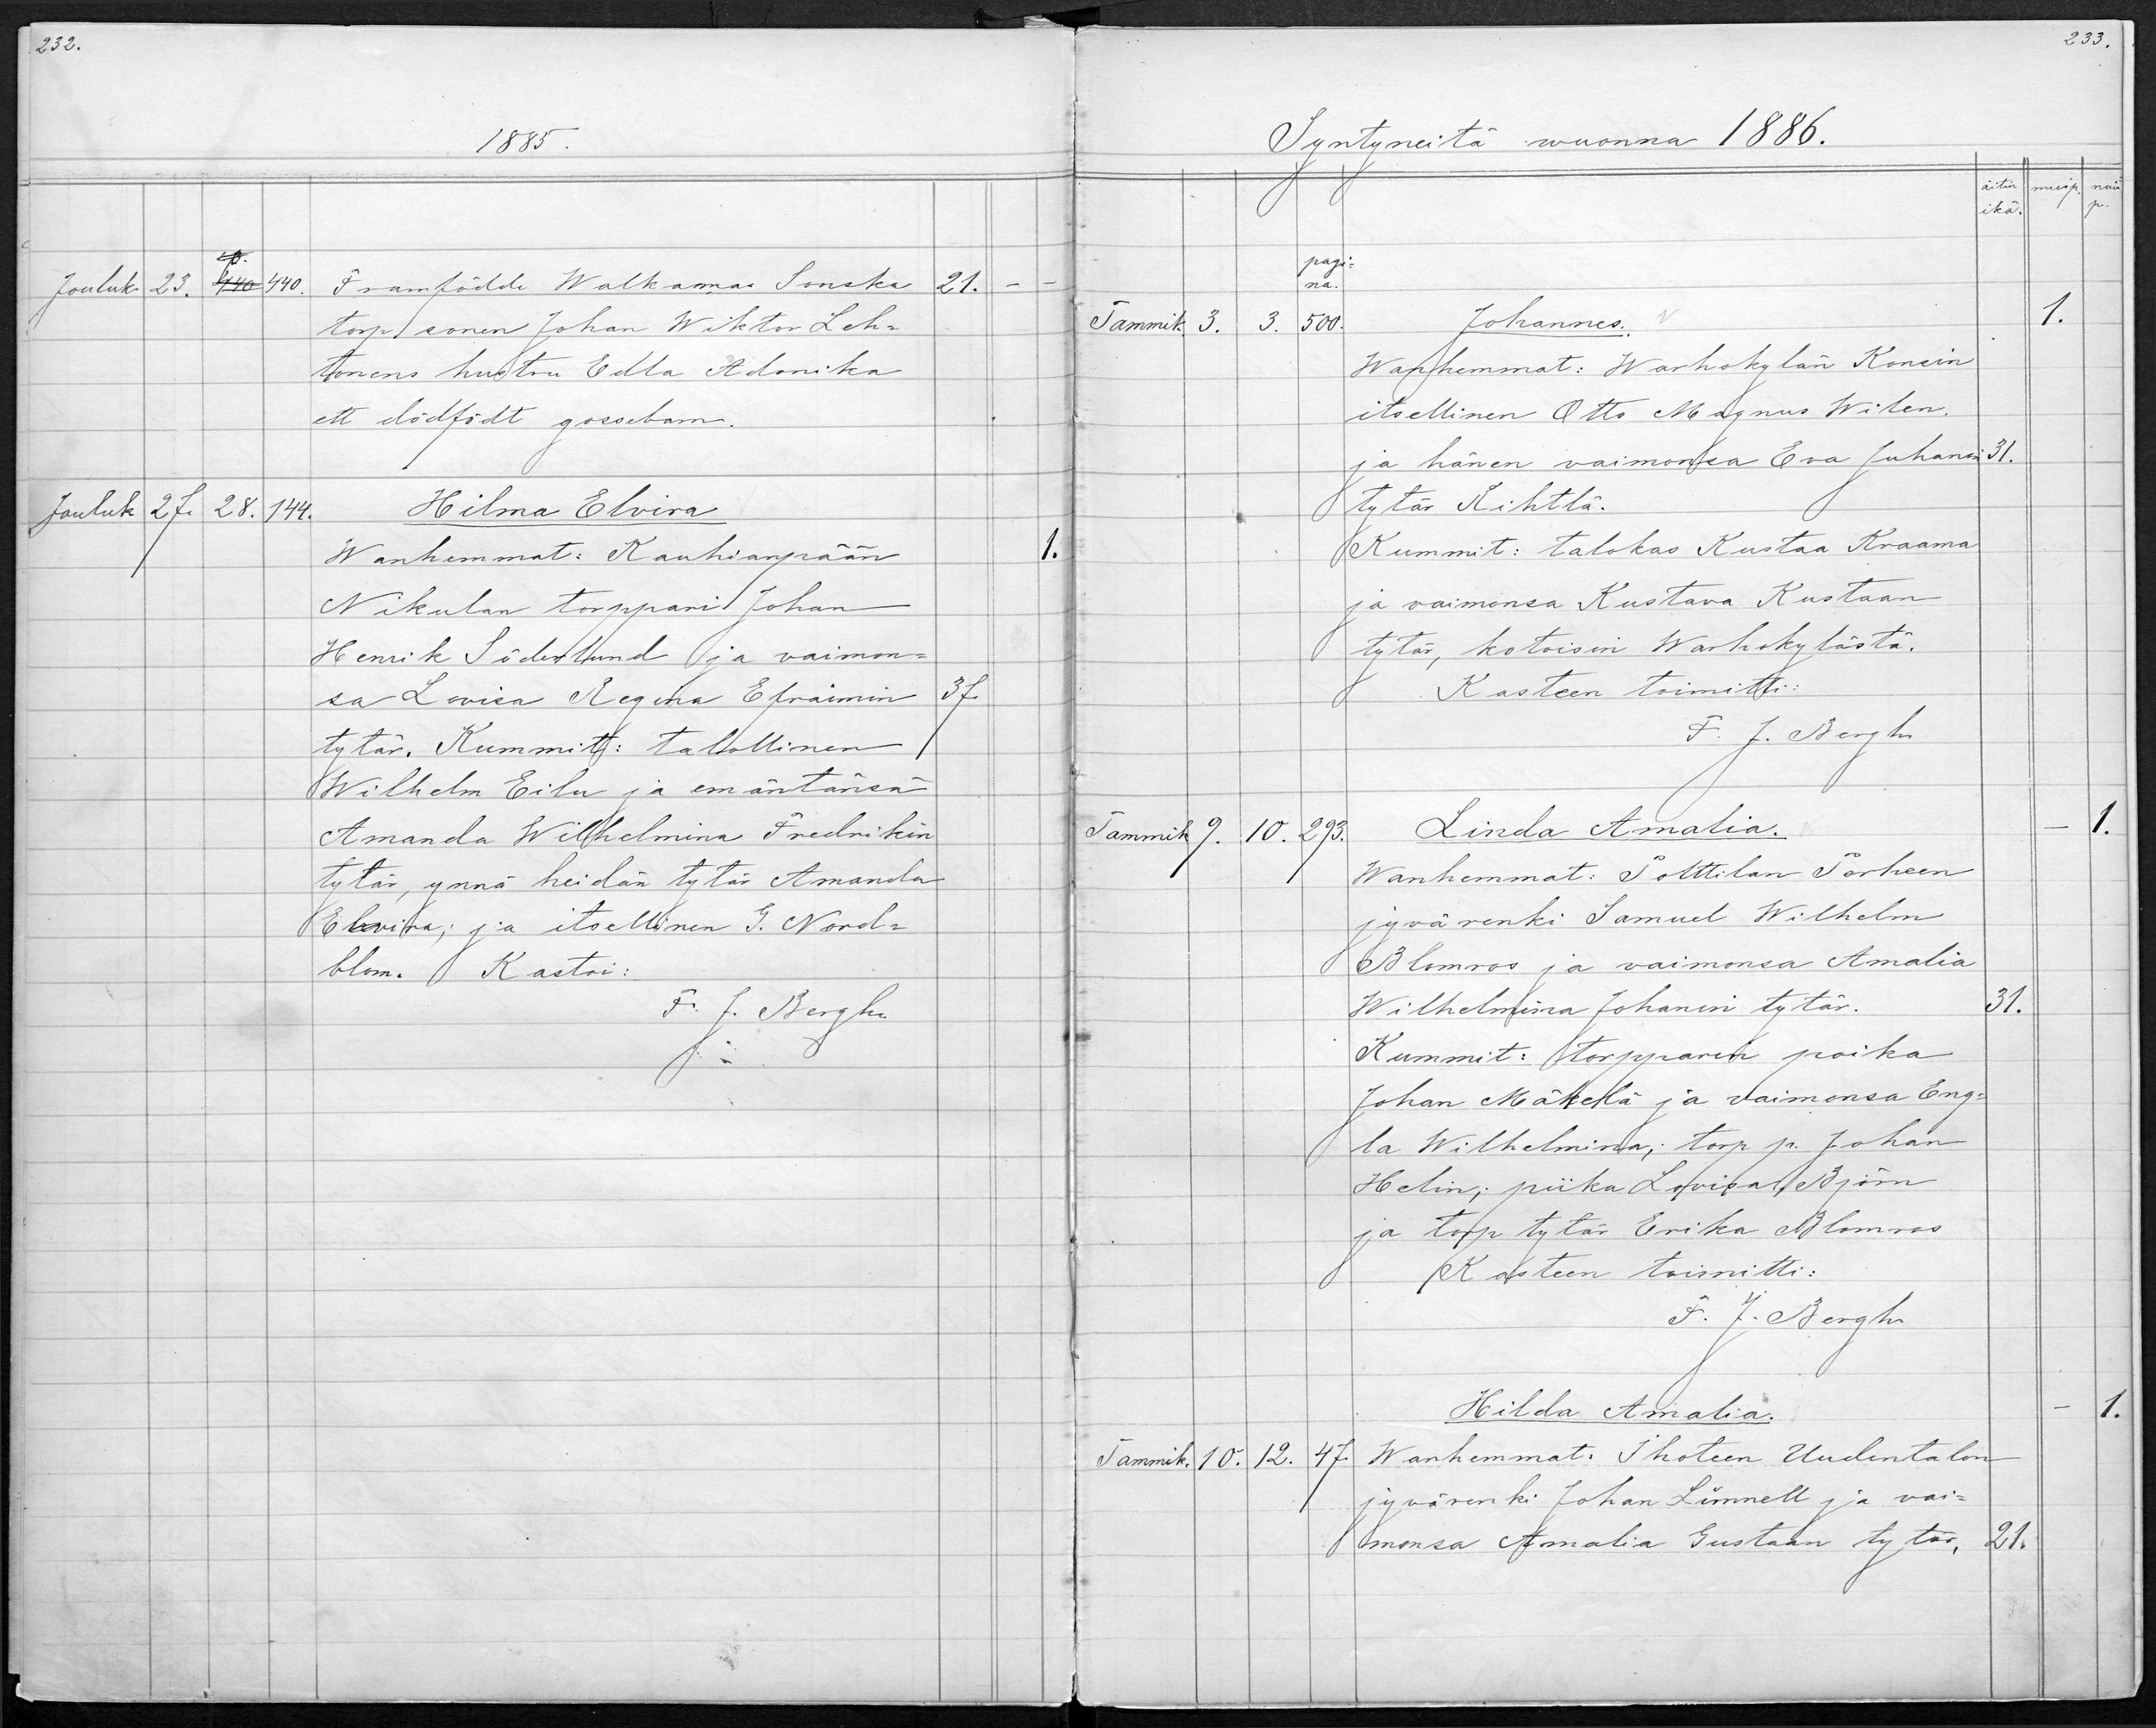 232.
1885.
Jouluk 23. 440 440. Framfödde Walkamaa Sonska 21. - -
torp sonen Johan Wiktor Leh=
tonens hustru Edla Adonika
ett dödfödt gossebarn.
Jouluk 27. 28. 144. Hilma Elvira
Wanhemmat: Kauhianpään 1.
Nikulan torppari Johan
Henrik Söderlund ja vaimon=
sa Lovisa Regina Efraimin 37.
tytär. Kummit: talollinen
Wilhelm Eilu ja emäntänsä
Amanda Wilhelmina Fredrikin
tytär, ynnä heidän tytär Amanda
Elvira; ja itsellinen G. Nord=
blom. Kastoi:
F. J. Bergh.
233.
Syntyneitä wuonna 1886.
äitin miesp. nais
ikä. p.
pagi=
na.
Tammik. 3. 3. 500. Johannes. 1.
Wanhemmat: Warhokylän Konsin
itsellinen Otto Magnus Wilen.
ja hänen vaimonsa Eva Juhanin 31.
tytär Rihtlä.
Kummit: talokas Kustaa Kraama
ja vaimonsa Kustava Kustaan
tytär, kotoisin Warhokylästä.
Kasteen toimitti:
F. J. Bergh
Tammik 9. 10. 293. Linda Amalia. - 1.
Wanhemmat: Polttilan Törheen
jyvärenki Samuel Wilhelm
Blomros ja vaimonsa Amalia
Wilhelmina Johanin tytär. 31.
Kummit: torpparin poika
Johan Mäkelä ja vaimonsa Eng=
la Wilhelmina; torp p. Johan
Helin; piika Lovisa Björn
ja torp tytär Erika Blomros
Kasteen toimitti:
F. J. Bergh
Hilda Amalia. - 1.
Tammik. 10. 12. 47. Wanhemmat: Ihoteen Uudentalon
jyvärenki Johan Linnell ja vai=
monsa Amalia Gustaan tytär, 21.